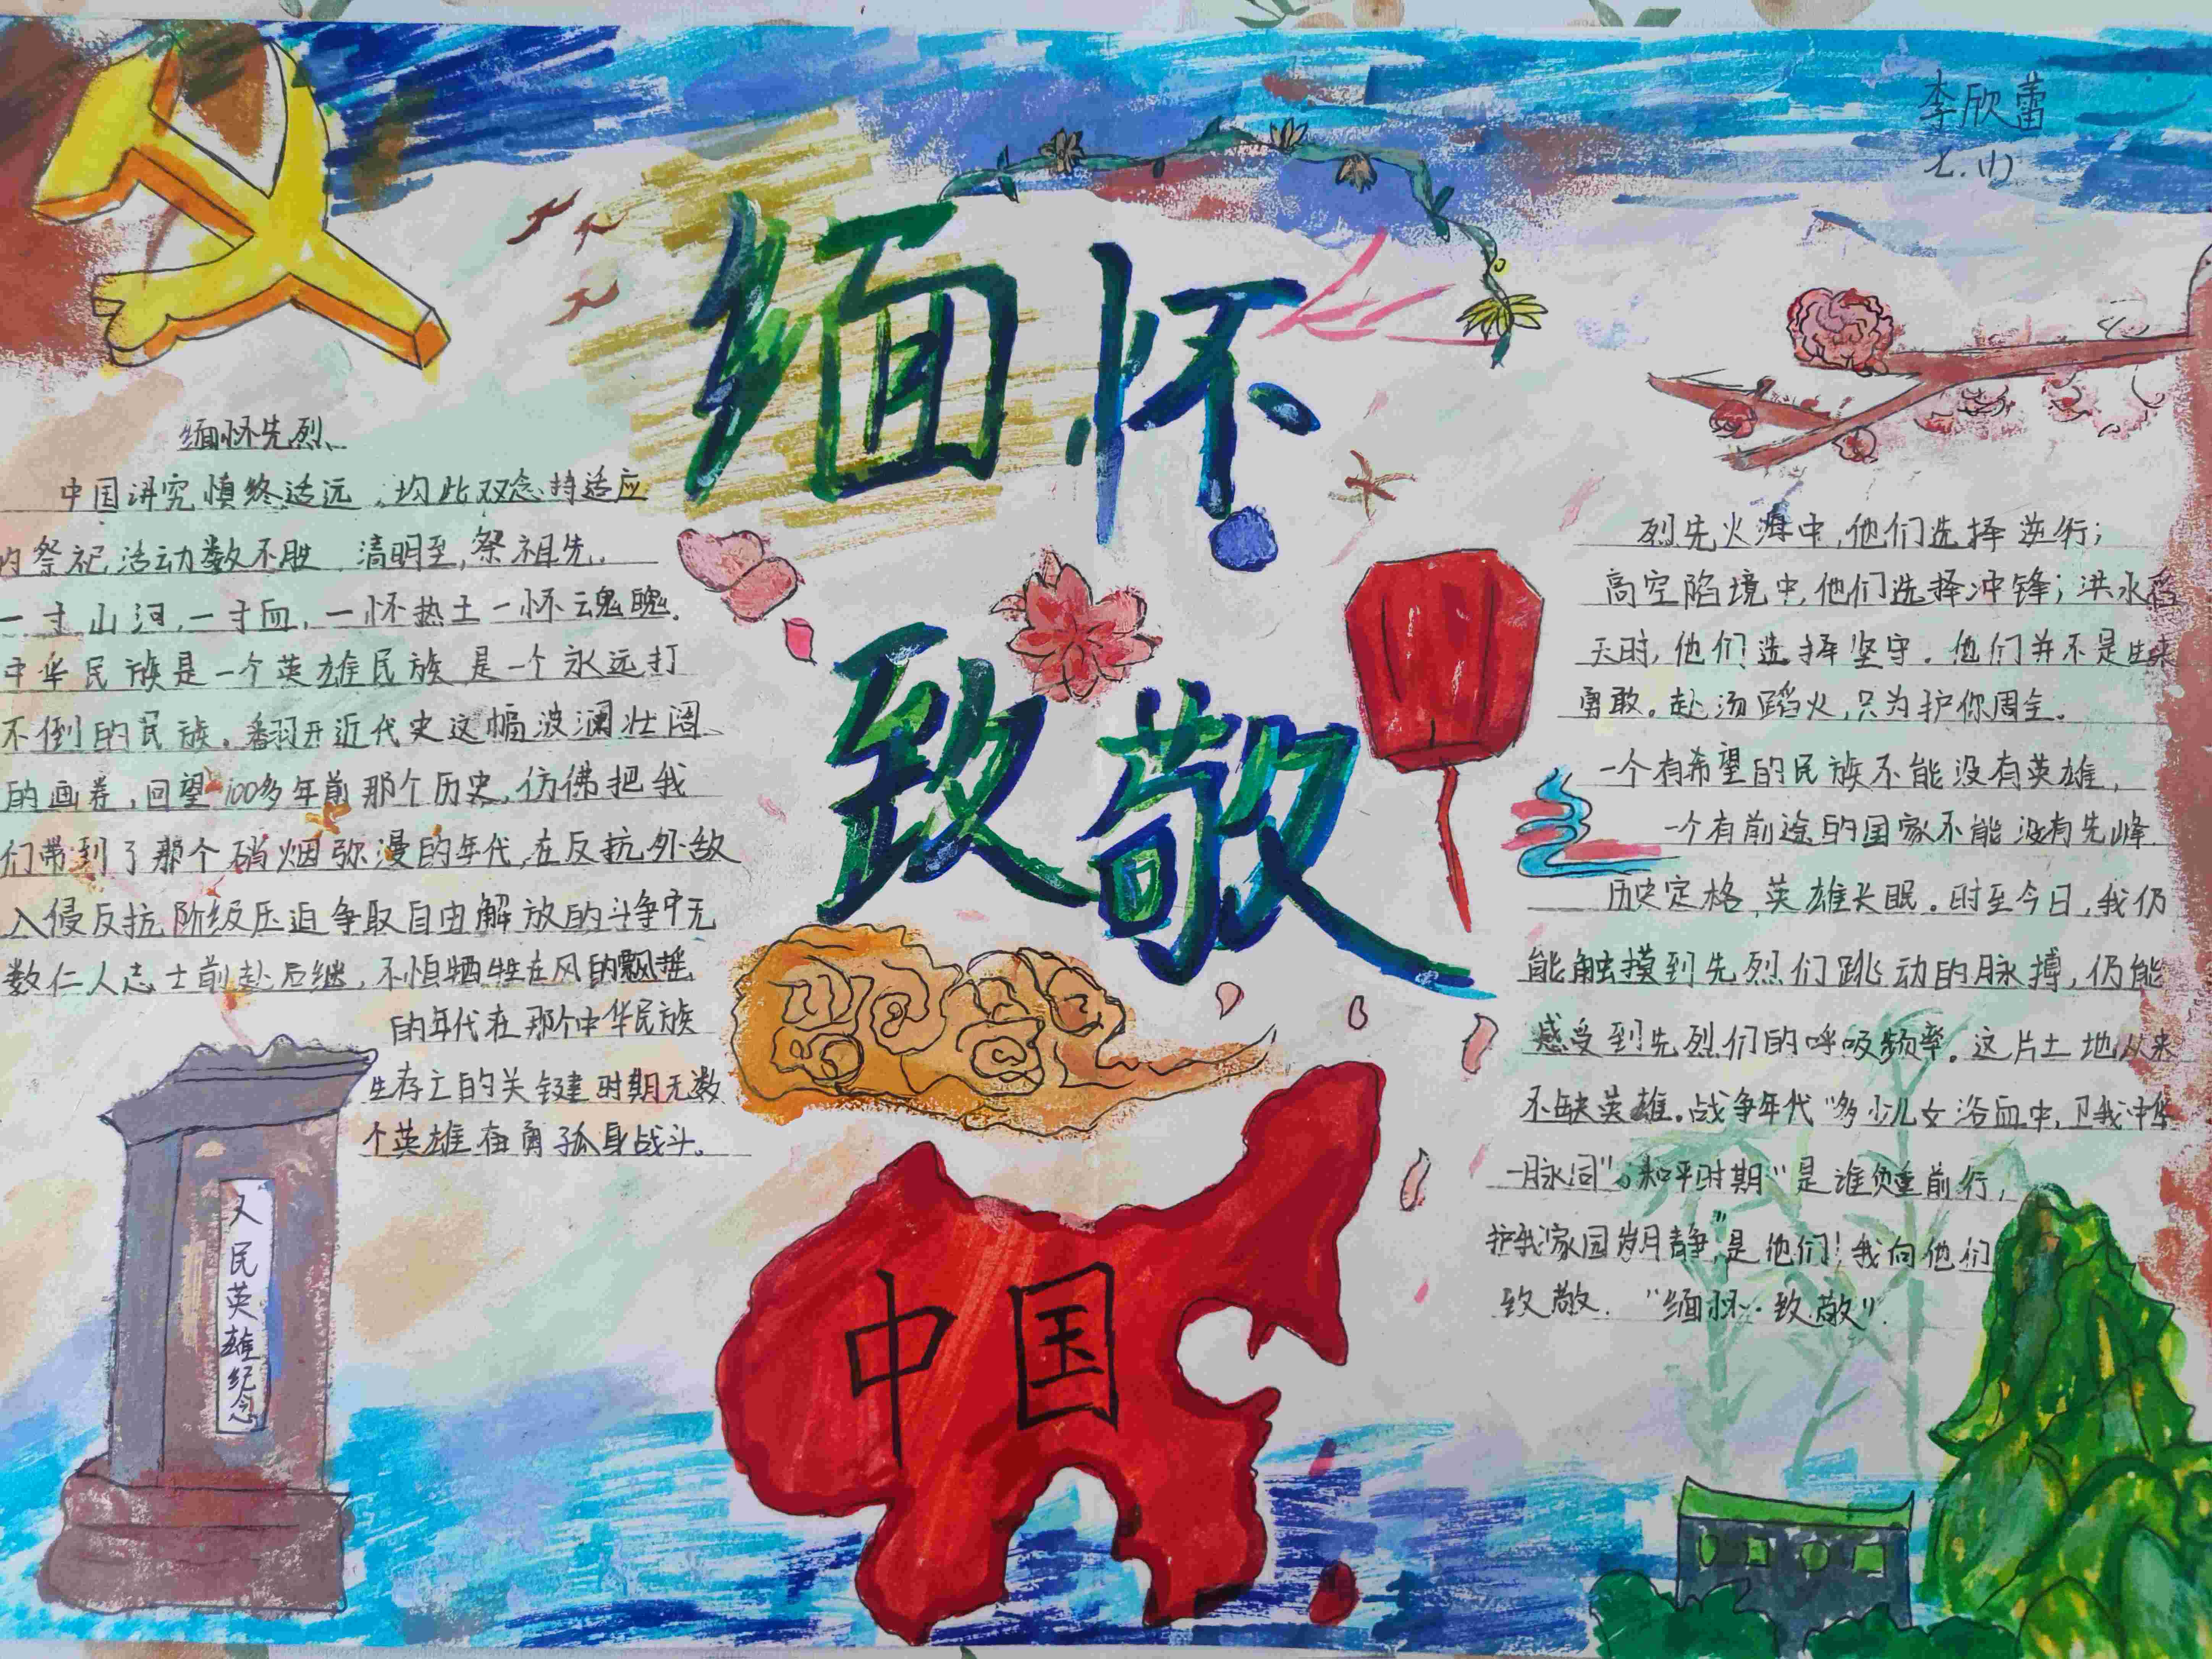 李欣蕾
七.(1)
缅怀
致敬
缅怀先烈
中国讲究慎终追远,均此双念持适应
的祭祀活动数不胜 清明至,祭祖先.
一寸山河,一寸血,一怀热土一怀魂魄.
中华民族是一个英雄民族,是一个永远打
不倒的民族。翻开近代史这幅波澜壮阔
的画卷,回望100多年前那个历史,仿佛把我
们带到了那个硝烟弥漫的年代,在反抗外敌
入侵反抗阶级压迫争取自由解放的斗争中无
数仁人志士前赴后继,不惧牺牲在风的飘摇
的年代在那个中华民族
生存亡的关键时期无数
个英雄奋勇孤身战斗。
人民英雄纪念
中国
烈先火海中,他们选择逆行;
高空陷境中,他们选择冲锋;洪水滔
天时,他们选择坚守.他们并不是生来
勇敢。赴汤蹈火,只为护你周全。
一个有希望的民族不能没有英雄,
一个有前途的国家不能没有先峰.
历史定格,英雄长眠。时至今日,我仍
能触摸到先烈们跳动的脉搏,仍能
感受到先烈们的呼吸频率。这片土地从来
不缺英雄.战争年代"多少儿女浴血中,卫我中华
一脉同";和平时期"是谁负重前行,
护我家园岁月静"是他们!我向他们
致敬."缅怀·致敬".